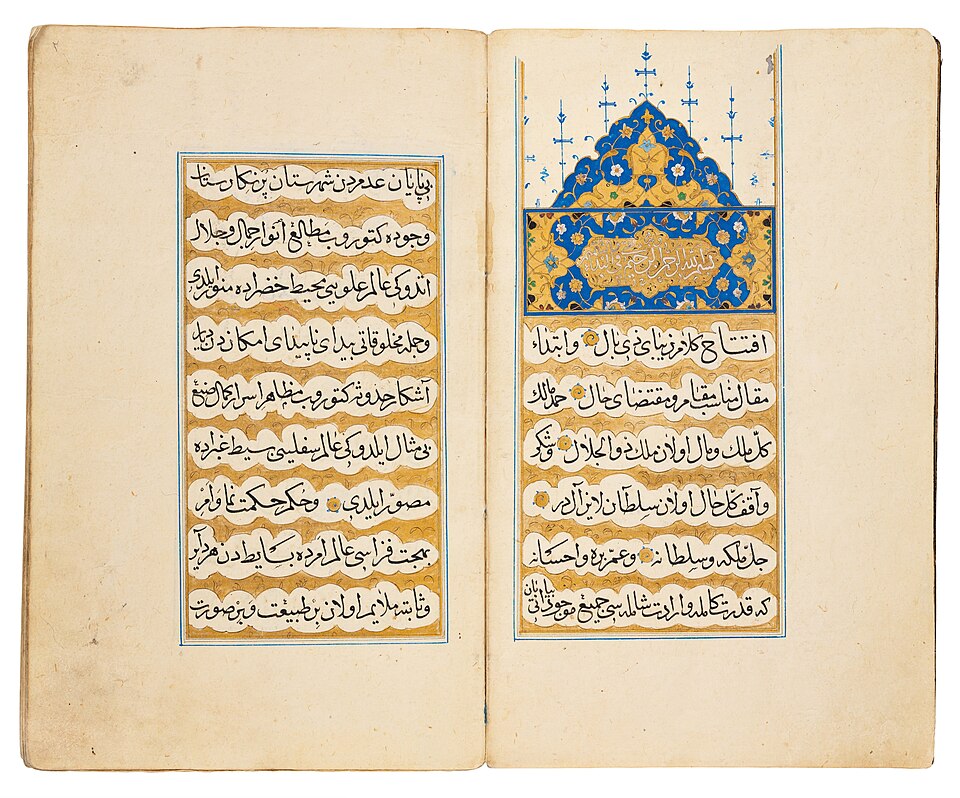 بسم الله الرحمن الرحيم
افتتاح كلام زيباى ذى بال وابتداء
مقال مناسب مقام و مقتضاى حال حمد مالك
كلّ ملك ومال اولان ملك ذو الجلال وشكر
واقف كل حال اولان سلطان لايزالدر
جل ملكه وسلطانه وعم بره واحسانه
كه قدرت كامله وارادت شامله سى جميع موجوداتى بيابان
بى پايان عدمدن شهرستان پر نكارستان
وجوده كتوروب مطالع انوار جمال وجلال
اتدوكى عالم علويى محيط خضراده منور ايلدى
وجمله مخلوقاتى بيداى ناپيداى امكاندن ديار
آشكار حدوثه كتوروب مظاهر اسرار كمال صنع
بى مثال ايلدوكى عالم سفليى بسيط غبراده
مصور ايلدى وحكم حكمت نما وامر
بهجت فزاسى عالم امرده بسايطدن هر داير
وثابته ملايم اولان بر طبيعت وبر صورت